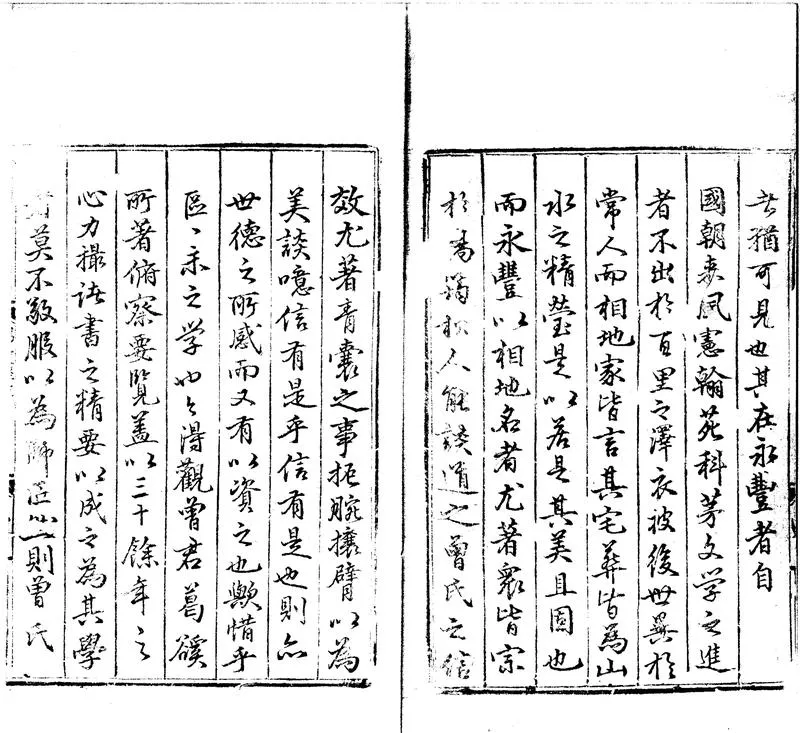 猶可見也其在永豐者自
國朝来風憲翰苑科苐文学之進
者不出於百里之澤衣被後世異於
常人而相地家皆言其宅葬皆為山
水之精瑩是以若是其美且固也
而永豐以相地名者尤著衆皆宗
於人能談道之曾氏之信
效尤著青囊之事扼腕攘臂以為
美談噫信有是乎信有是也則亦
世德之所感而又有以資之也歟惜乎
區〻余之学也今得觀曾君葛溪
所著俯察要覽蓋以三十餘年之
心力撮諸書之精要以成之為其學
者莫不敬服以為師則曾氏